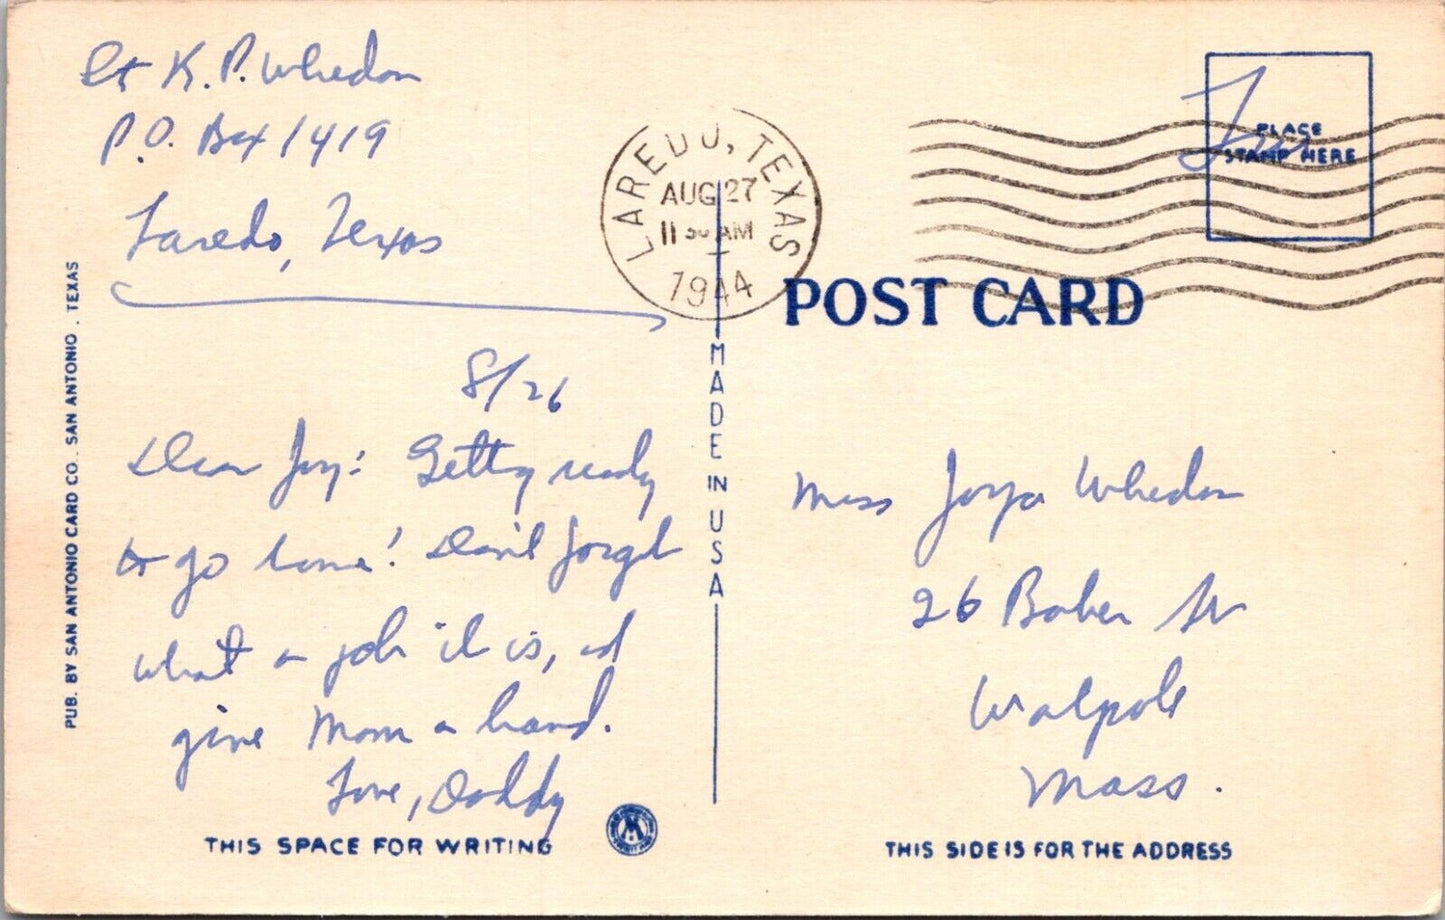 Lt K. P. Whedon
P.O. Box 1419
Laredo, Texas
8/26
Dear Joy: Getting ready
to go home! Don't forget
what a job it is, and
give Mom a hand.
Love, Daddy
THIS SPACE FOR WRITING
PUB. BY SAN ANTONIO CARD CO. SAN ANTONIO. TEXAS
LAREDO, TEXAS
AUG 27
11 30 AM
1944
MADE IN USA
Free
PLACE
STAMP HERE
POST CARD
Miss Whedon
26 Baker St
Walpole
Mass.
THIS SIDE IS FOR THE ADDRESS